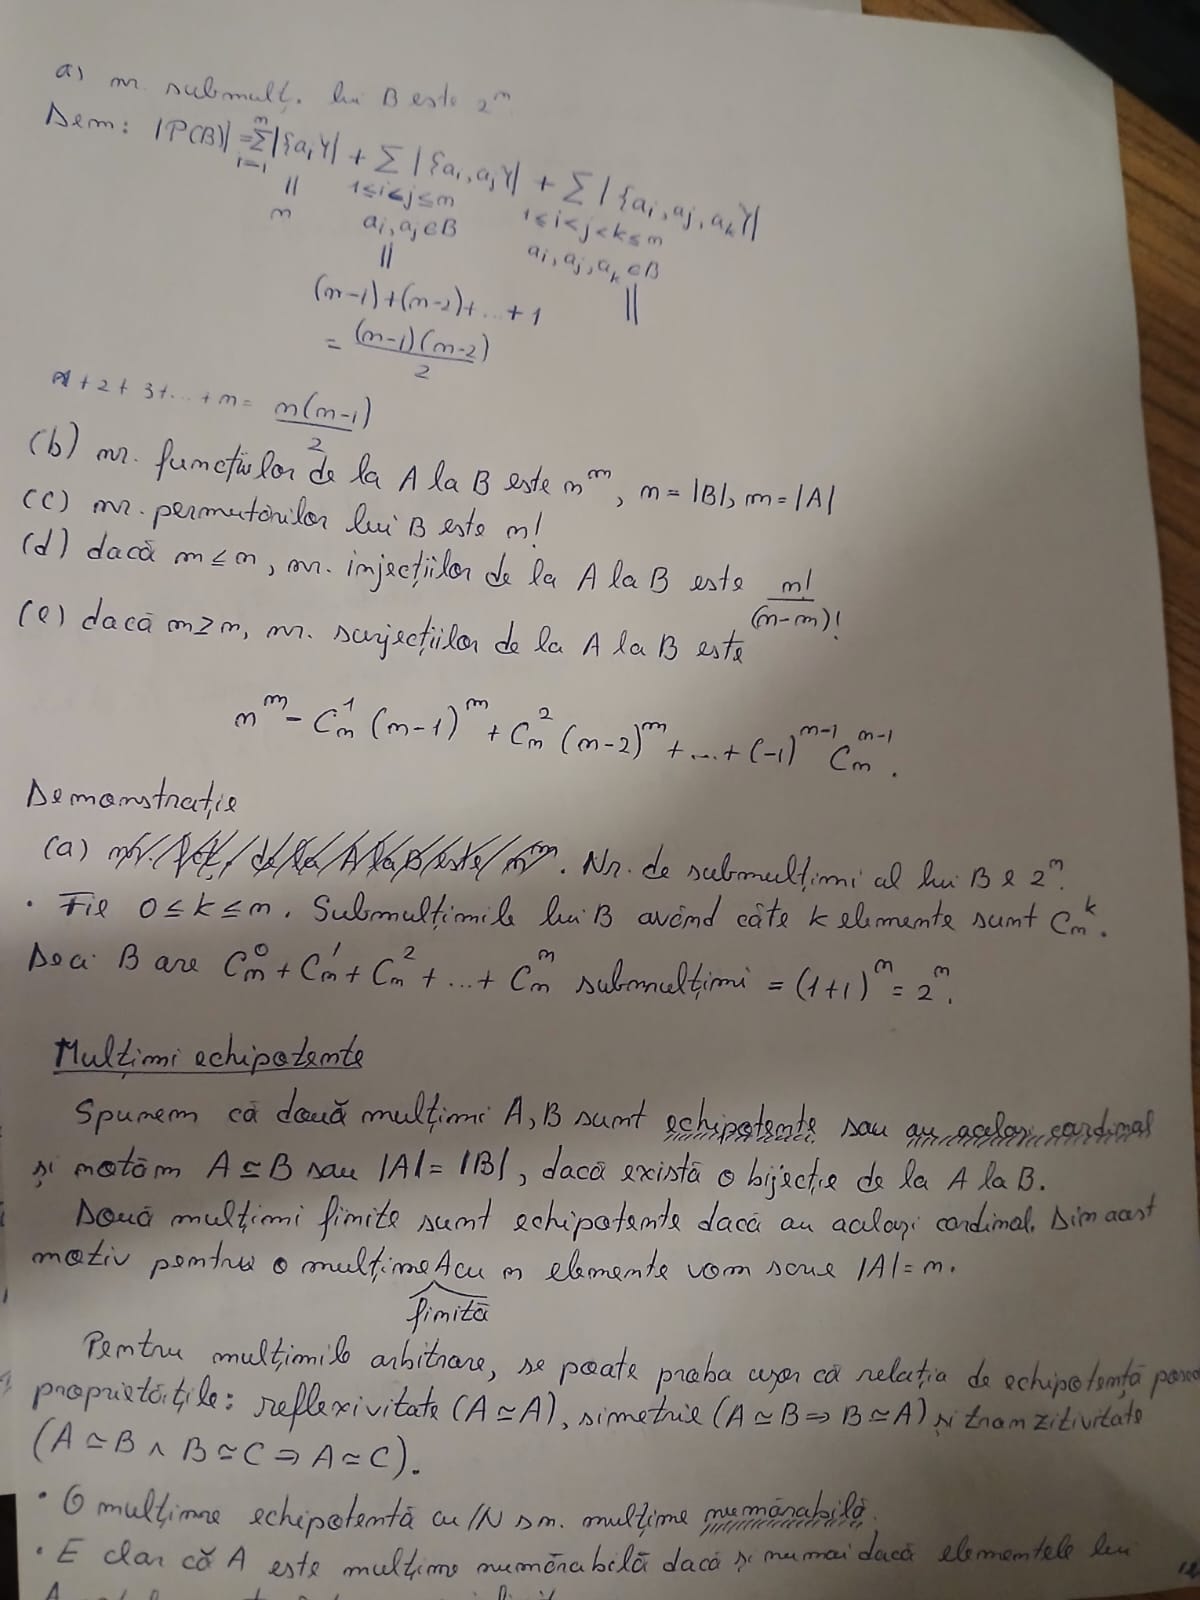 a) nr. submulț. lui B este 2^n
Dem: |P(B)| = Σ_{i=1}^{n} |{a_i}| + Σ_{1≤i<j≤n} |{a_i, a_j}| + Σ_{1≤i<j<k≤n} |{a_i, a_j, a_k}|
a_i, a_j ∈ B
a_i, a_j, a_k ∈ B
|| || ||
n
(n-1)+(n-2)+...+1
= (n-1)(n-2)/2
1+2+3+...+n = n(n-1)/2
(b) nr. funcțiilor de la A la B este n^m, n = |B|, m = |A|
(c) nr. permutărilor lui B este n!
(d) dacă m ≤ n, nr. injecțiilor de la A la B este n!/(n-m)!
(e) dacă m ≥ n, nr. surjecțiilor de la A la B este
n^m - C_n^1 (n-1)^m + C_n^2 (n-2)^m + ... + (-1)^{n-1} C_n^{n-1}.
Demonstrație
(a) nr. fct. de la A la B este n^m. Nr. de submulțimi al lui B e 2^n.
• Fie 0 ≤ k ≤ n. Submulțimile lui B având câte k elemente sunt C_n^k.
Deci B are C_n^0 + C_n^1 + C_n^2 + ... + C_n^n submulțimi = (1+1)^n = 2^n.
Mulțimi echipotente
Spunem că două mulțimi A, B sunt echipotente sau au același cardinal
și notăm A ≃ B sau |A| = |B|, dacă există o bijecție de la A la B.
Două mulțimi finite sunt echipotente dacă au același cardinal. Din acest
motiv pentru o mulțime A cu n elemente vom scrie |A| = n.
finită
Pentru mulțimile arbitrare, se poate proba ușor că relația de echipotență
proprietățile: reflexivitate (A ≃ A), simetrie (A ≃ B ⇒ B ≃ A) și tranzitivitate
(A ≃ B ∧ B ≃ C ⇒ A ≃ C).
• O mulțime echipotentă cu ℕ s.n. mulțime numărabilă.
• E clar că A este mulțime numărabilă dacă și numai dacă elementele lui